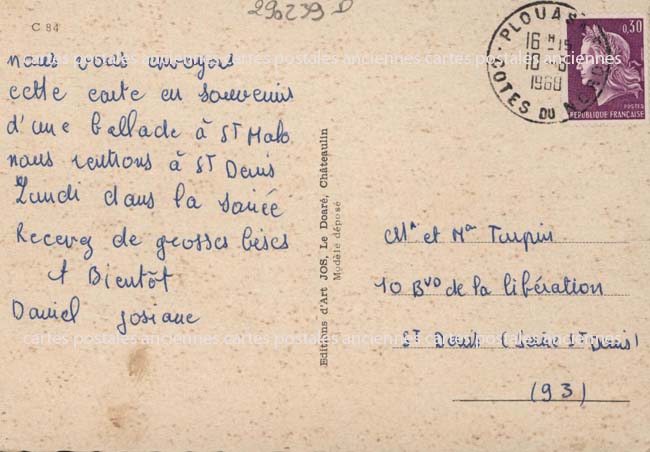 C 84
290239 D
nous vous envoyons
cette carte en souvenir
d'une ballade à St Malo
nous rentrons à St Denis
Lundi dans la soirée
Recevez de grosses bises
A Bientôt
Daniel Josiane
cartes postales anciennes cartes postales anciennes cartes postales anciennes
cartes postales anciennes cartes postales anciennes cartes postales anciennes
Editions d'Art JOS, Le Doaré, Châteaulin
Modèle déposé
PLOUAS
16 H 15
10-6
COTES DU NORD
0,30
POSTES
REPUBLIQUE FRANÇAISE
Mr et Mme Turpin
10 Bvd de la libération
St Denis (Seine St Denis)
(93)